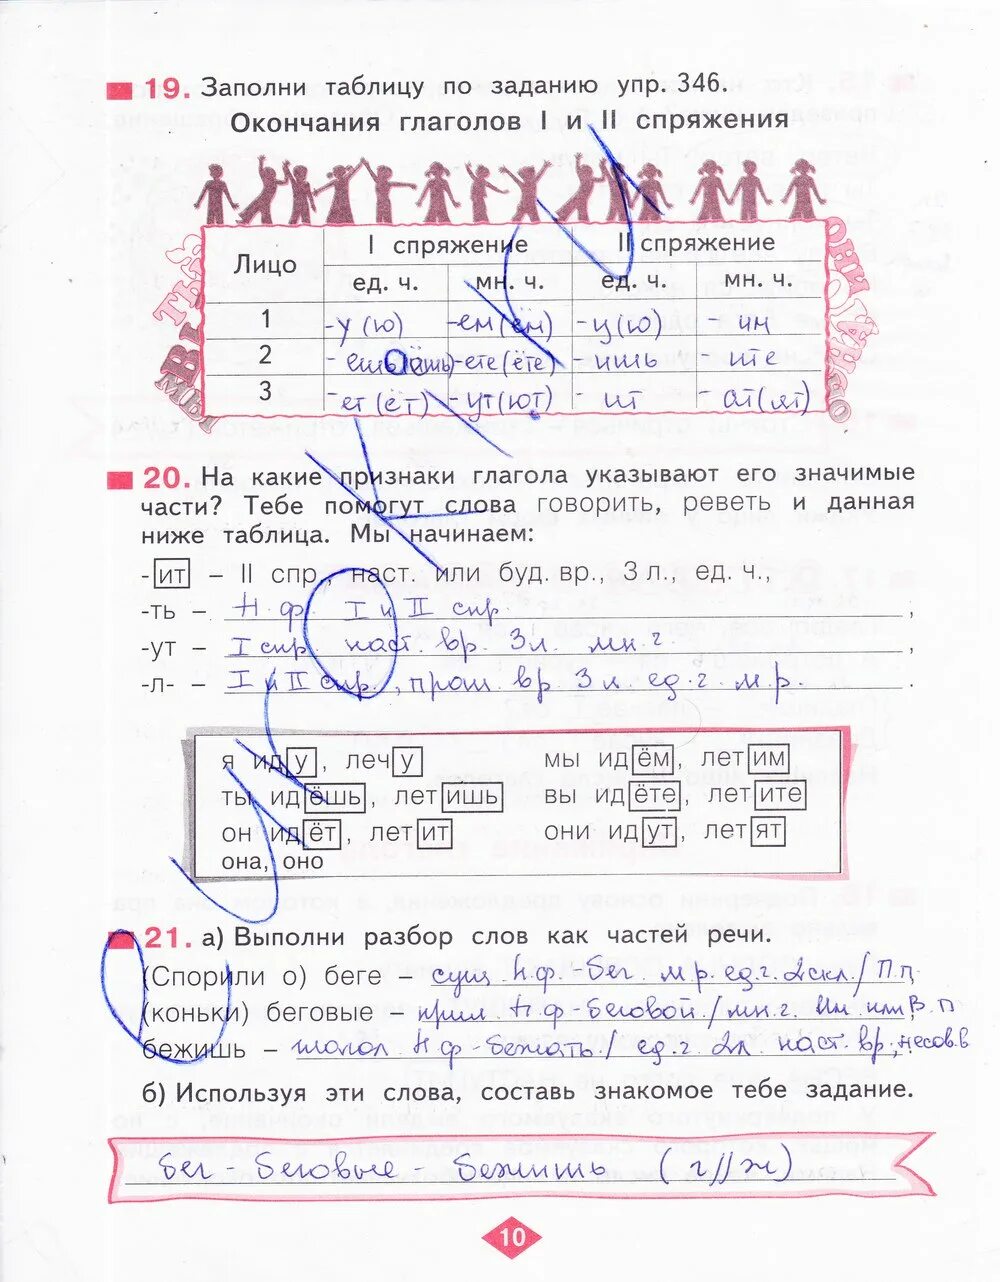 19. Заполни таблицу по заданию упр. 346.
Окончания глаголов I и II спряжения
Лицо I спряжение II спряжение
ед. ч. мн. ч. ед. ч. мн. ч.
1 -у (ю) -ем (ём) -у (ю) - им
2 - ешь (ёшь) -ете (ёте) - ишь - ите
3 -ет (ёт) - ут (ют) - ит - ат (ят)
ТЫ
ВЫ
МЫ
ОНИ
20. На какие признаки глагола указывают его значимые
части? Тебе помогут слова говорить, реветь и данная
ниже таблица. Мы начинаем:
-ит – II спр., наст. или буд. вр., 3 л., ед. ч.,
-ть – Н. ф. I и II спр. ,
-ут – I спр. наст. вр. 3л. мн. ч. ,
-л- – I и II спр., прош. вр 3 л. ед. ч. м. р. .
я иду, лечу мы идём, летим
ты идёшь, летишь вы идёте, летите
он идёт, летит они идут, летят
она, оно
21. а) Выполни разбор слов как частей речи.
(Спорили о) беге – сущ Н.ф.-бег. м.р. ед.ч. 2скл./П.п,
(коньки) беговые – прил Н.ф-беговой/мн.ч. Им. или В.П
бежишь – глагол. Н.ф-бежать/ ед.ч. 2л. наст. вр, несов.в
б) Используя эти слова, составь знакомое тебе задание.
бег - беговые - бежишь (г//ж)
10